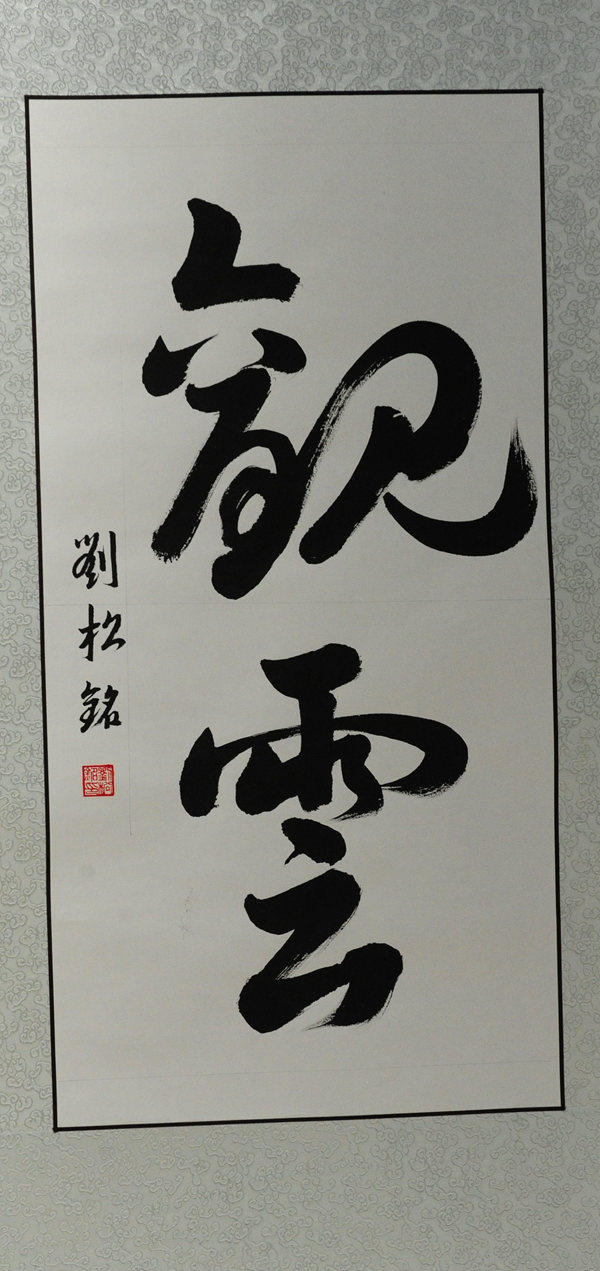 觀雲
劉松銘